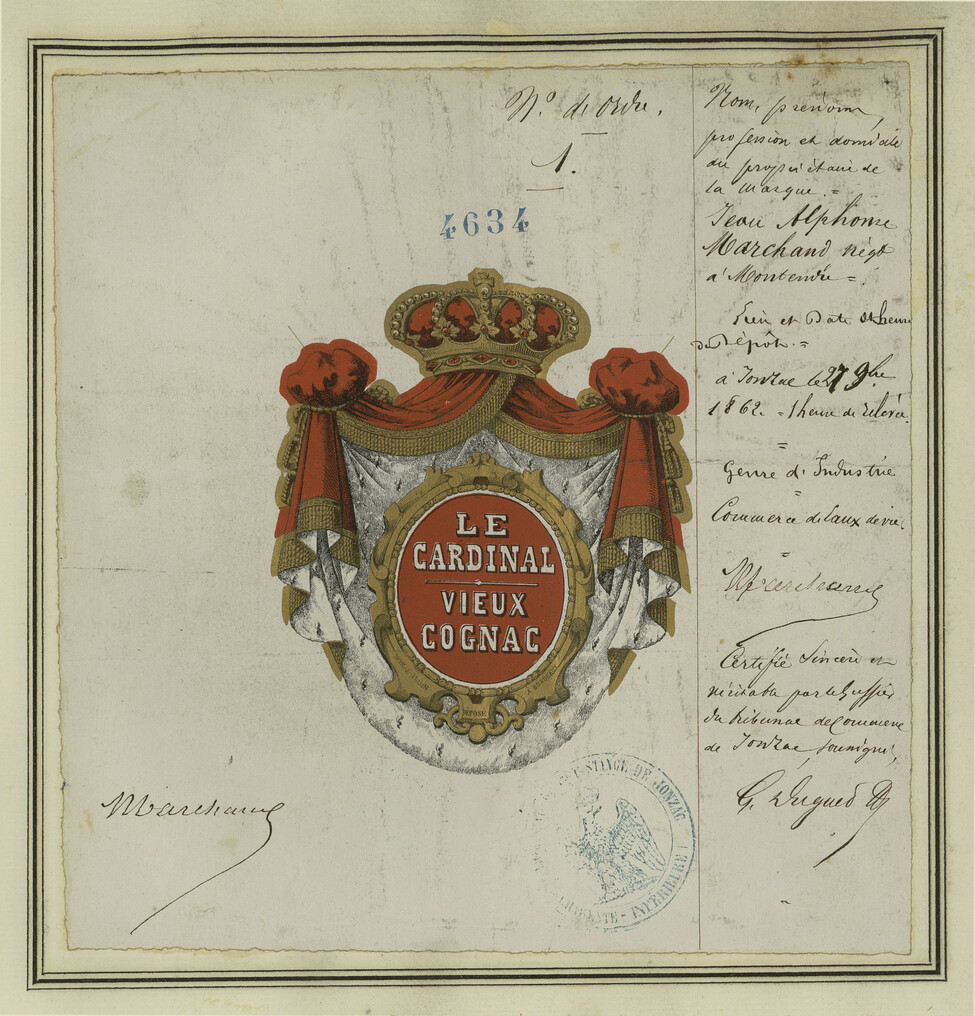 N° de ordre.
1.
4634
LE
CARDINAL
VIEUX
COGNAC
DÉPOSÉ
Marchand
STANCE DE JONZAC
CHARENTE-INFÉRIEURE
Nom, prénom,
profession et domicile
du propriétaire de
la marque. =
Jean Alphonse
Marchand négt
à Montendre =.
Lieu et Date et heure
du Dépôt. =
à Jonzac le 27 9bre
1862. = 1 heure de relevée.
=
Genre d'Industrie
=
Commerce d'Eaux de vie.
=
Marchand
Certifié Sincère et
véritable par le Greffier
du tribunal de Commerce
de Jonzac, soussigné,